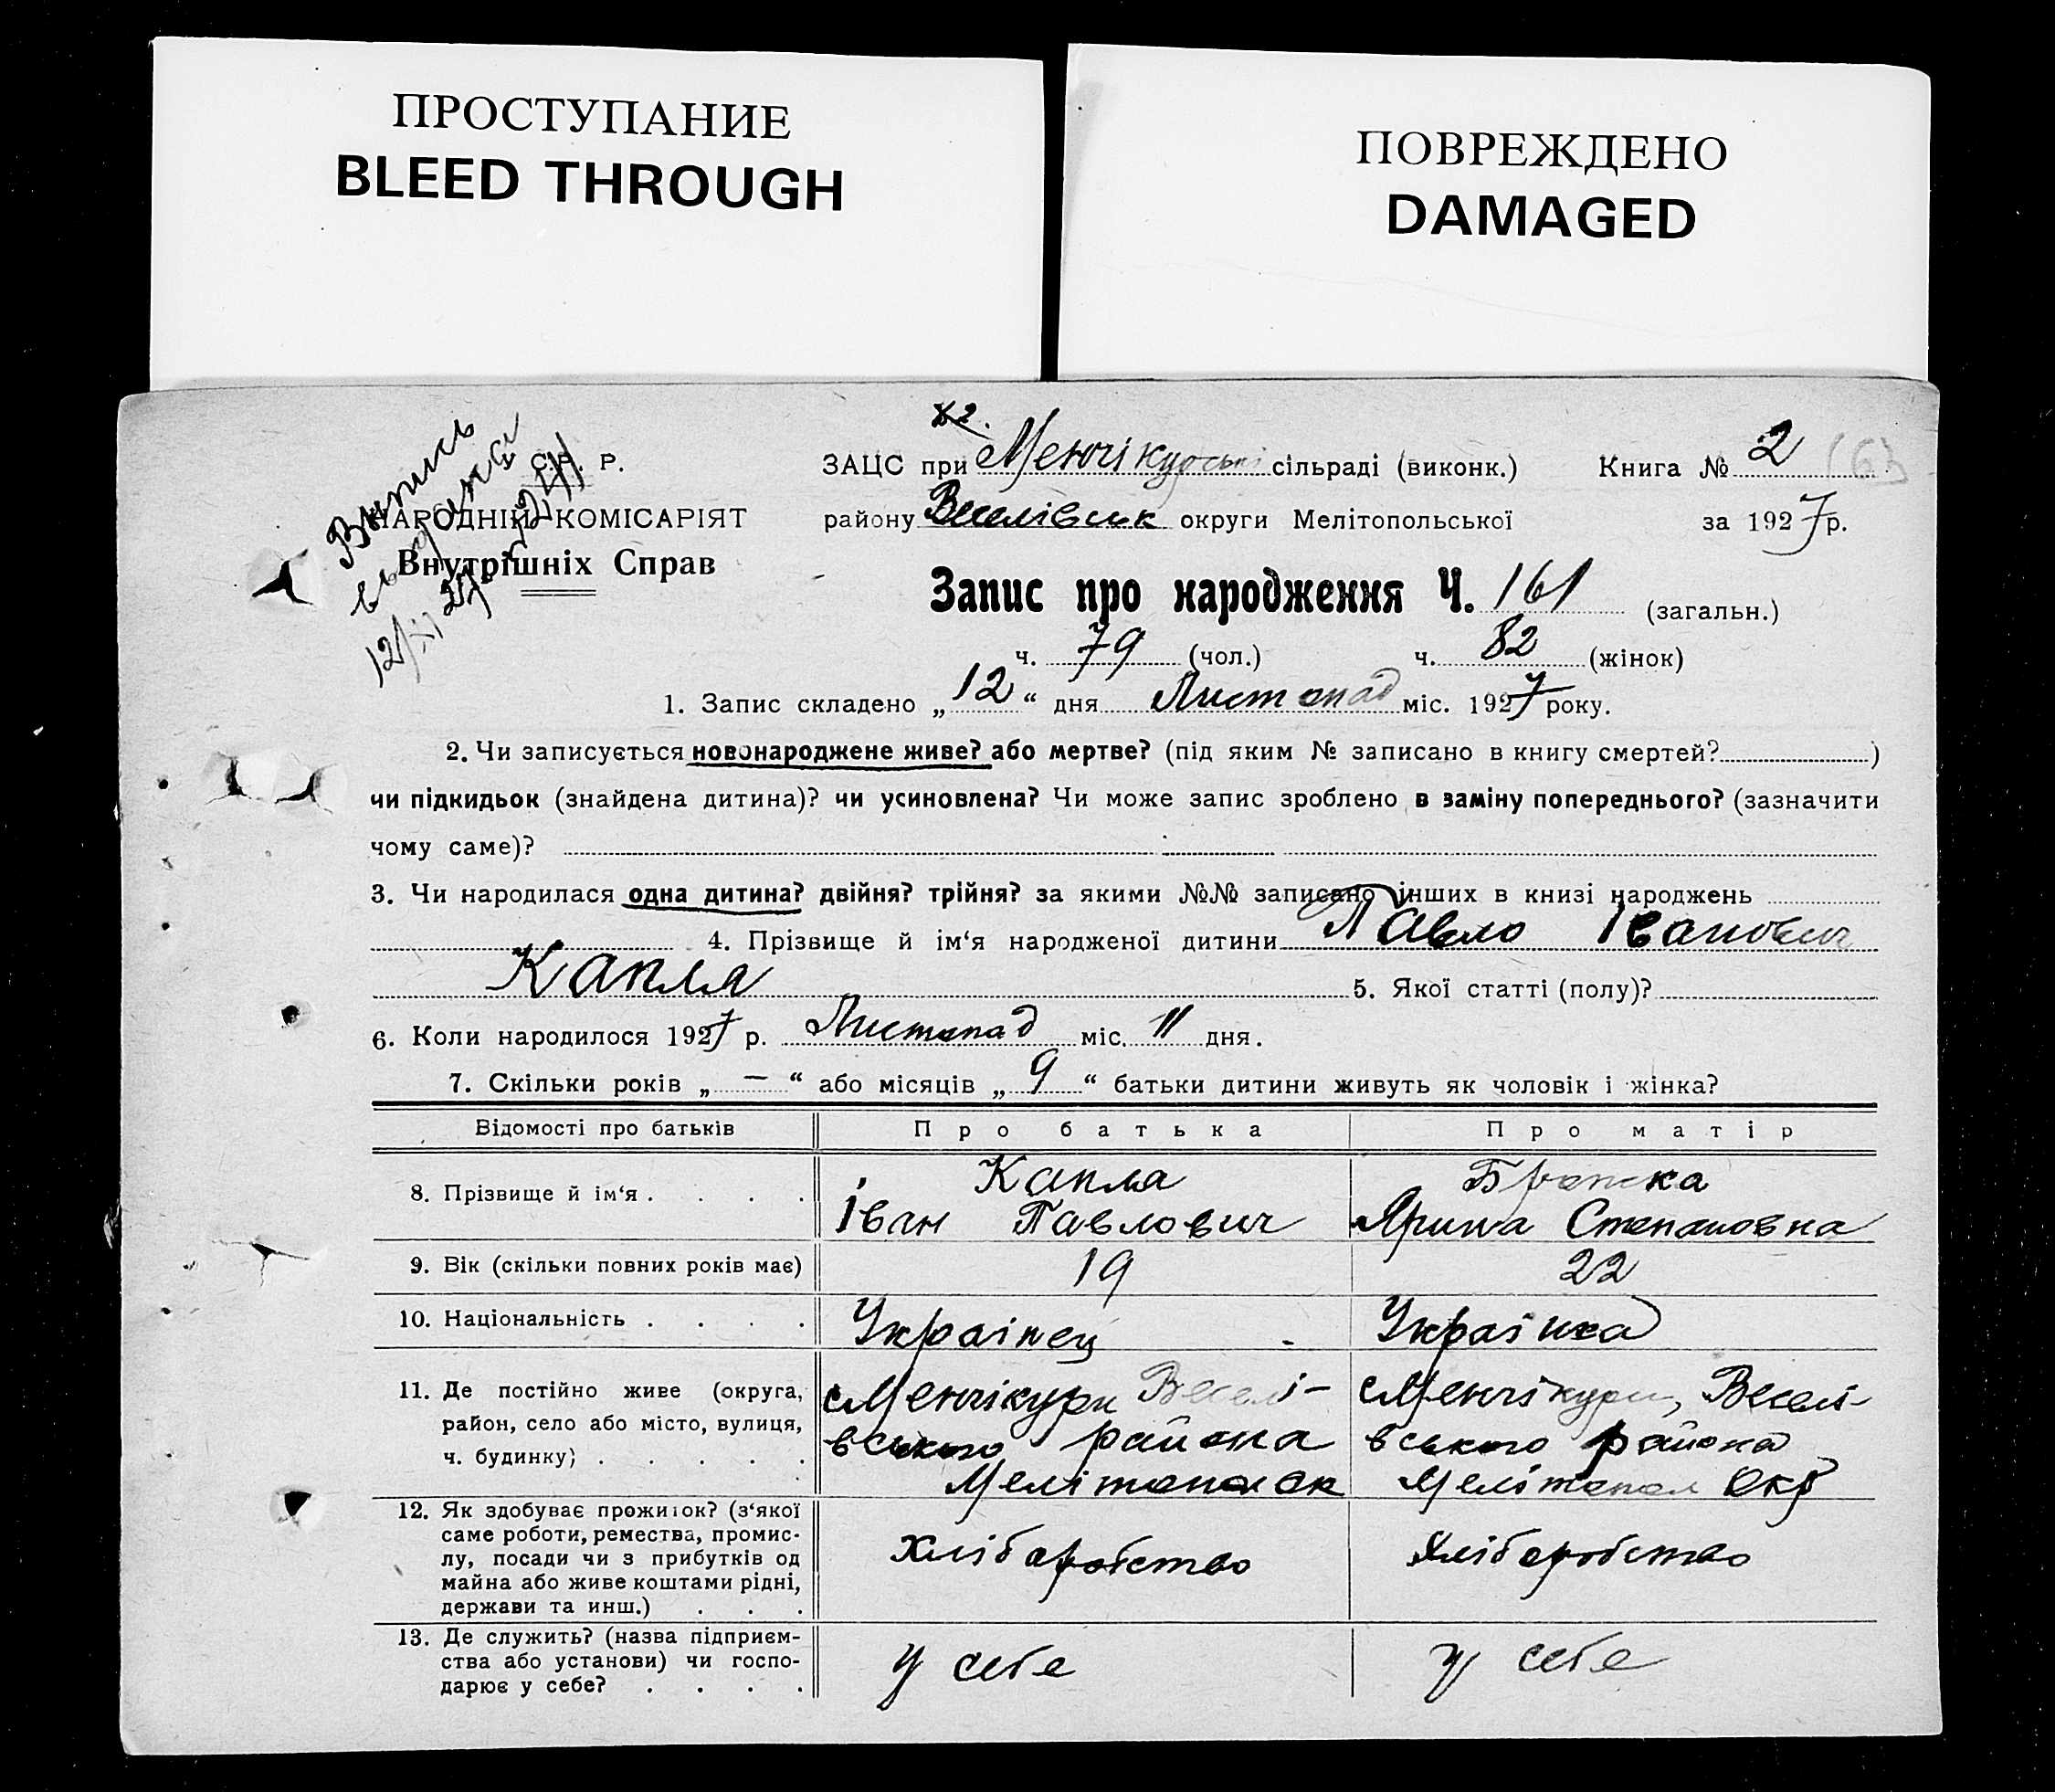 ПРОСТУПАНИЕ
BLEED THROUGH
ПОВРЕЖДЕНО
DAMAGED
Випись
видана
12/XI 27р.
С.Р. Р.
НАРОДНІЙ КОМІСАРІЯТ
Внутрішніх Справ
ЗАЦС при Менчікурські сільраді (виконк.) Книга № 2
району Веселівськ округи Мелітопольської за 1927 р.
Запис про народження Ч. 161 (загальн.)
ч. 79 (чол.) ч. 82 (жінок)
1. Запис складено „ 12 “ дня Листопад міс. 1927 року.
2. Чи записується новонароджене живе? або мертве? (під яким № записано в книгу смертей? )
чи підкидьок (знайдена дитина)? чи усиновлена? Чи може запис зроблено в заміну попереднього? (зазначити
чому саме)?
3. Чи народилася одна дитина? двійня? трійня? за якими №№ записано інших в книзі народжень
4. Прізвище й ім‘я народженої дитини Павло Іванович
Капля 5. Якої статті (полу)?
6. Коли народилося 1927 р. Листопад міс. 11 дня.
7. Скільки років „ — “ або місяців „ 9 “ батьки дитини живуть як чоловік і жінка?
Відомості про батьків Про батька Про матір
8. Прізвище й ім‘я . . . . Капля
Іван Павлович Ярина Степановна
9. Вік (скільки повних років має) 19 22
10. Національність . . . . Українец Українка
11. Де постійно живе (округа, Менчікури Веселі- Менчікури, Веселі-
район, село або місто, вулиця, вського района вського района
ч. будинку) . . . . . Мелітопол ок Мелітопол Окр
12. Як здобуває прожиток? (з‘якої
саме роботи, ремества, промис-
лу, посади чи з прибутків од Хліборобство Хліборобство
майна або живе коштами рідні,
держави та инш.) . . .
13. Де служить? (назва підприєм-
ства або установи) чи госпо- у себе у себе
дарює у себе? . . . .